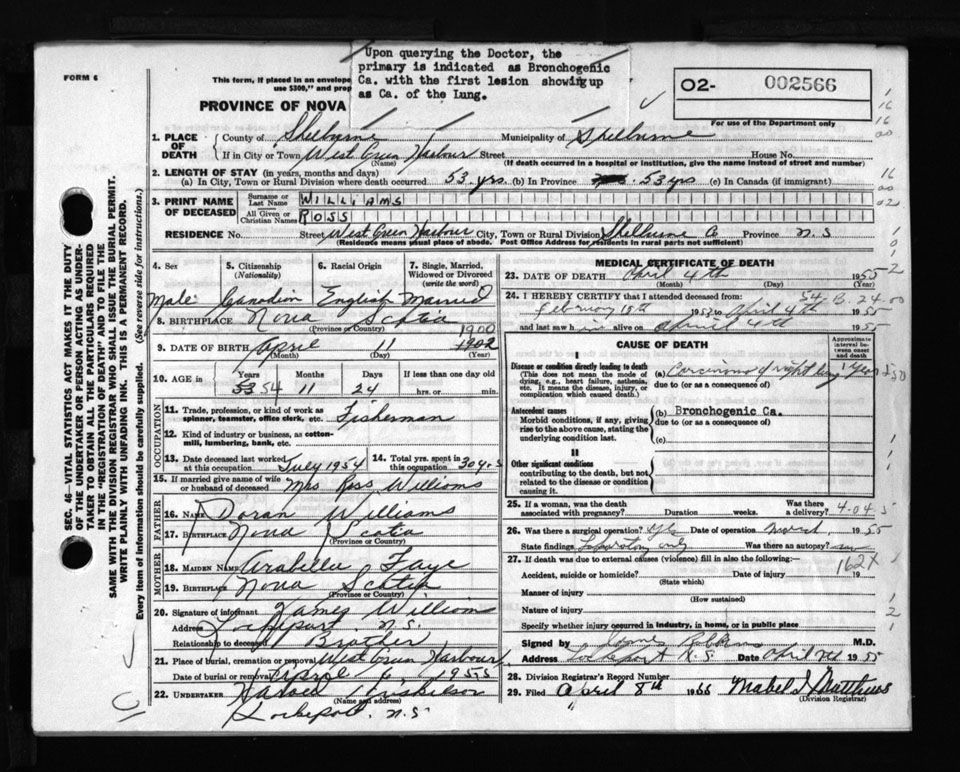 FORM 6
Upon querying the Doctor, the
primary is indicated as Bronchogenic
Ca. with the first lesion showing up
as Ca. of the Lung.
This form, if placed in an envelope
use $300," and prop
PROVINCE OF NOVA
02- 002566
For use of the Department only
1. PLACE OF DEATH County of Shelburne Municipality of Shelburne
If in City or Town West Green Harbour Street House No.
(Name) (If death occurred in a hospital or institution, give the name instead of street and number)
2. LENGTH OF STAY (in years, months and days)
(a) In City, Town or Rural Division where death occurred 53 yrs. (b) In Province 53 yrs (c) In Canada (if immigrant)
3. PRINT NAME OF DECEASED Surname or Last Name WILLIAMS
All Given or Christian Names ROSS
RESIDENCE No. Street West Green Harbour City, Town or Rural Division Shelburne Co Province N.S
(Residence means usual place of abode. Post Office Address for residents in rural parts not sufficient)
SEC. 46—VITAL STATISTICS ACT MAKES IT THE DUTY
OF THE UNDERTAKER OR PERSON ACTING AS UNDER-
TAKER TO OBTAIN ALL THE PARTICULARS REQUIRED
IN THE "REGISTRATION OF DEATH" AND TO FILE THE
SAME WITH THE DIVISION REGISTRAR WHO SHALL ISSUE THE BURIAL PERMIT.
WRITE PLAINLY WITH UNFADING INK. THIS IS A PERMANENT RECORD.
Every item of information should be carefully supplied. (See reverse side for instructions.)
4. Sex 5. Citizenship (Nationality) 6. Racial Origin 7. Single, Married, Widowed or Divorced (write the word)
Male Canadian English Married
8. BIRTHPLACE Nova Scotia
(Province or Country)
1900
9. DATE OF BIRTH April 11 1902
(Month) (Day) (Year)
10. AGE in Years Months Days If less than one day
53 54 11 24 hrs. or min.
OCCUPATION
11. Trade, profession, or kind of work as
spinner, teamster, office clerk, etc. Fisherman
12. Kind of industry or business, as cotton-
mill, lumbering, bank, etc.
13. Date deceased last worked at this occupation July 1954 14. Total yrs. spent in this occupation 30 yrs
15. If married give name of wife
or husband of deceased Mrs Ross Williams
FATHER
16. NAME Doran Williams
17. BIRTHPLACE Nova Scotia
(Province or Country)
MOTHER
18. MAIDEN NAME Arabella Faye
19. BIRTHPLACE Nova Scotia
(Province or Country)
20. Signature of informant James Williams
Address Lockeport N.S.
Relationship to deceased Brother
21. Place of burial, cremation or removal West Green Harbour
Date of burial or removal April 6 1955
22. UNDERTAKER Harold
(Name and address)
Lockeport. N.S
MEDICAL CERTIFICATE OF DEATH
23. DATE OF DEATH April 4th 1955
(Month) (Day)
24. I HEREBY CERTIFY that I attended deceased from:
February 15th to April 4th 1955
and last saw him alive on April 4th 1955
CAUSE OF DEATH
Approximate interval between onset and death
I
Disease or condition directly leading to death
(This does not mean the mode of
dying, e.g., heart failure, asthenia,
etc. It means the disease, injury, or
complication which caused death.)
(a) Carcinoma of right lung 1 Year
due to (or as a consequence of)
Antecedent causes
Morbid conditions, if any, giving
rise to the above cause, stating the
underlying condition last.
(b) Bronchogenic Ca.
due to (or as a consequence of)
(c)
II
Other significant conditions
contributing to the death, but not
related to the disease or condition
causing it.
25. If a woman, was the death
associated with pregnancy? Duration weeks. Was there a delivery?
26. Was there a surgical operation? yes Date of operation March 1955
State findings only Was there an autopsy? no
27. If death was due to external causes (violence) fill in also the following: 162X
Accident, suicide or homicide? Date of injury 19
(State which)
Manner of injury
(How sustained)
Nature of injury
Specify whether injury occurred in industry, in home, or in public place
Signed by M.D.
Address Lockeport N.S. Date April 1955
28. Division Registrar's Record Number
29. Filed April 8th 1955 Mabel I Matthews
(Division Registrar)